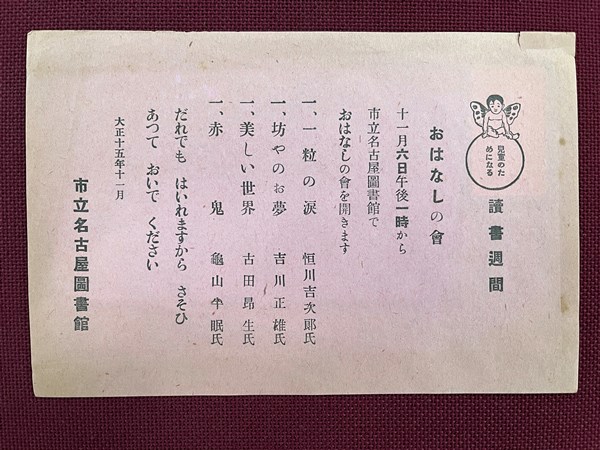 児童のた
めになる
讀書週間
おはなしの會
十一月六日午後一時から
市立名古屋圖書館で
おはなしの會を開きます
一、一粒の涙 恒川吉次郎氏
一、坊やのお夢 吉川正雄氏
一、美しい世界 古田昂生氏
一、赤鬼 龜山半眠氏
だれでも はいれますから さそひ
あつて おいで ください
大正十五年十一月
市立名古屋圖書館